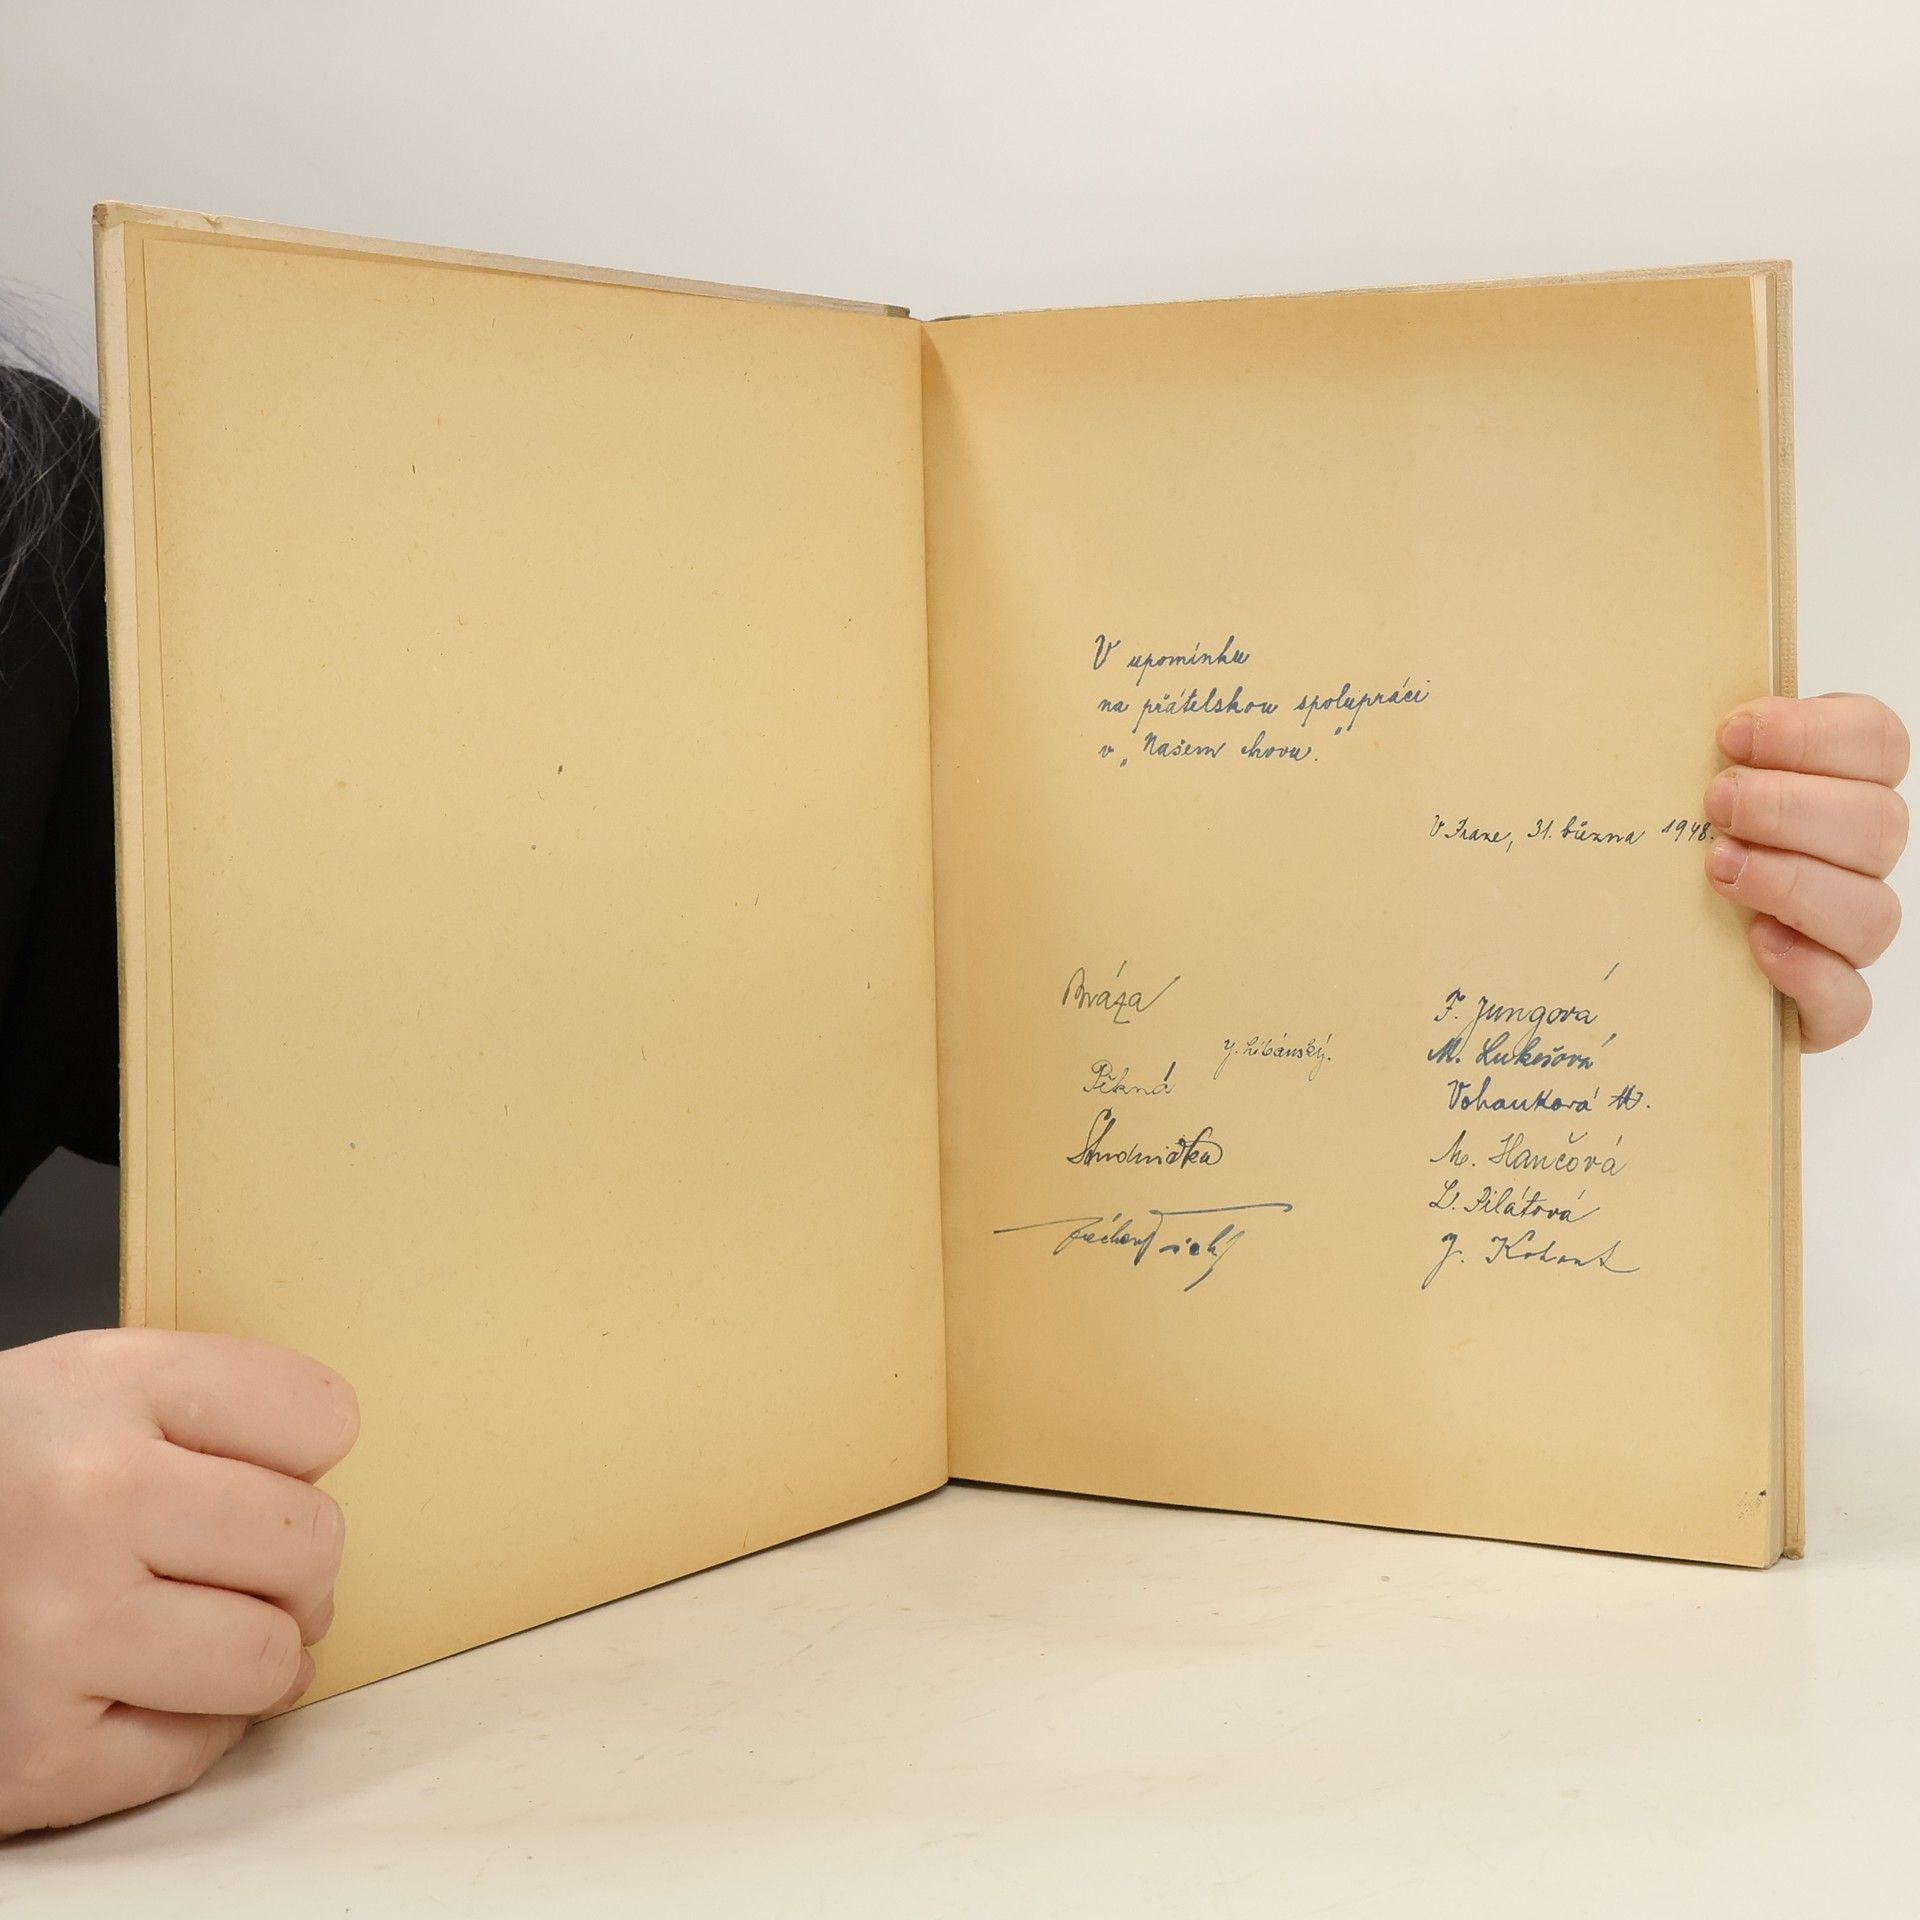 V upomínku
na přátelskou spolupráci
v „Našem chovu."
V Praze, 31. března 1948.
Bráza
J. Libánský.
Pěkná
Studnička
F. Jungová
M. Lukešová
Vohanková M.
M. Hančová
L. Pilátová
J. Kohout